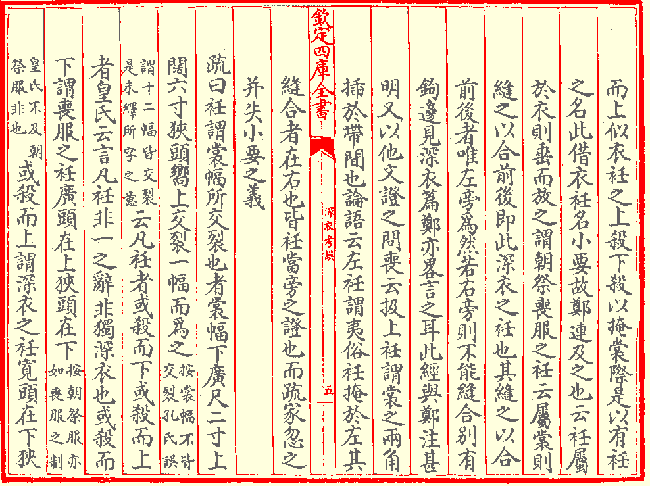 而上似衣衽之上殺下殺以掩裳際是以有衽
之名此借衣衽名小要故鄭連及之也云衽屬
於衣則垂而放之謂朝祭喪服之衽云屬裳則
縫之以合前後即此深衣之衽也其縫之以合
前後者唯左旁爲然若右旁則不能縫合别有
鉤邊見深衣篇鄭亦畧言之耳此經與鄭注甚
明又以他文證之問喪云扱上衽謂裳之兩角
插於帶間也論語云左衽謂夷俗衽掩於左其
縫合者在右也皆衽當旁之證也而疏家忽之
并失小要之義
欽定四庫全書
深衣考誤
五
疏曰衽謂裳幅所交裂也者裳幅下廣尺二寸上
闊六寸狹頭嚮上交裂一幅而爲之按裳幅不皆交裂孔氏誤
謂十二幅皆交裂是未繹所字之意云凡衽者或殺而下或殺而上
者皇氏云言凡衽非一之辭非獨深衣也或殺而
下謂喪服之衽廣頭在上狹頭在下按朝祭服亦如喪服之制
皇氏不及朝祭服非也或殺而上謂深衣之衽寬頭在下狹